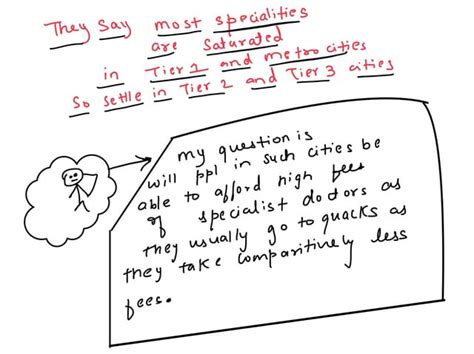 They say most specialities
are saturated
in Tier 1 and metro cities
So settle in Tier 2 and Tier 3 cities
my question is
will ppl in such cities be
able to afford high fees
of specialist doctors as
they usually go to quacks as
they take comparitively less
fees.